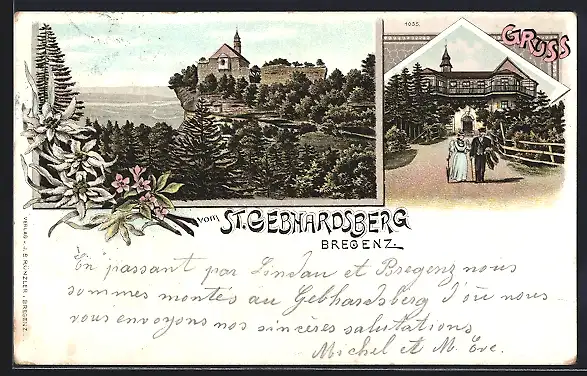 1035.
GRUSS
vom ST. GEBHARDSBERG
BREGENZ
En passant par Lindau et Bregenz nous
sommes montés au Gebhardsberg d'où nous
vous envoyons nos sincères salutations
Michel et M. Eve.
VERLAG v. J. B. RÜNZLER, BREGENZ.